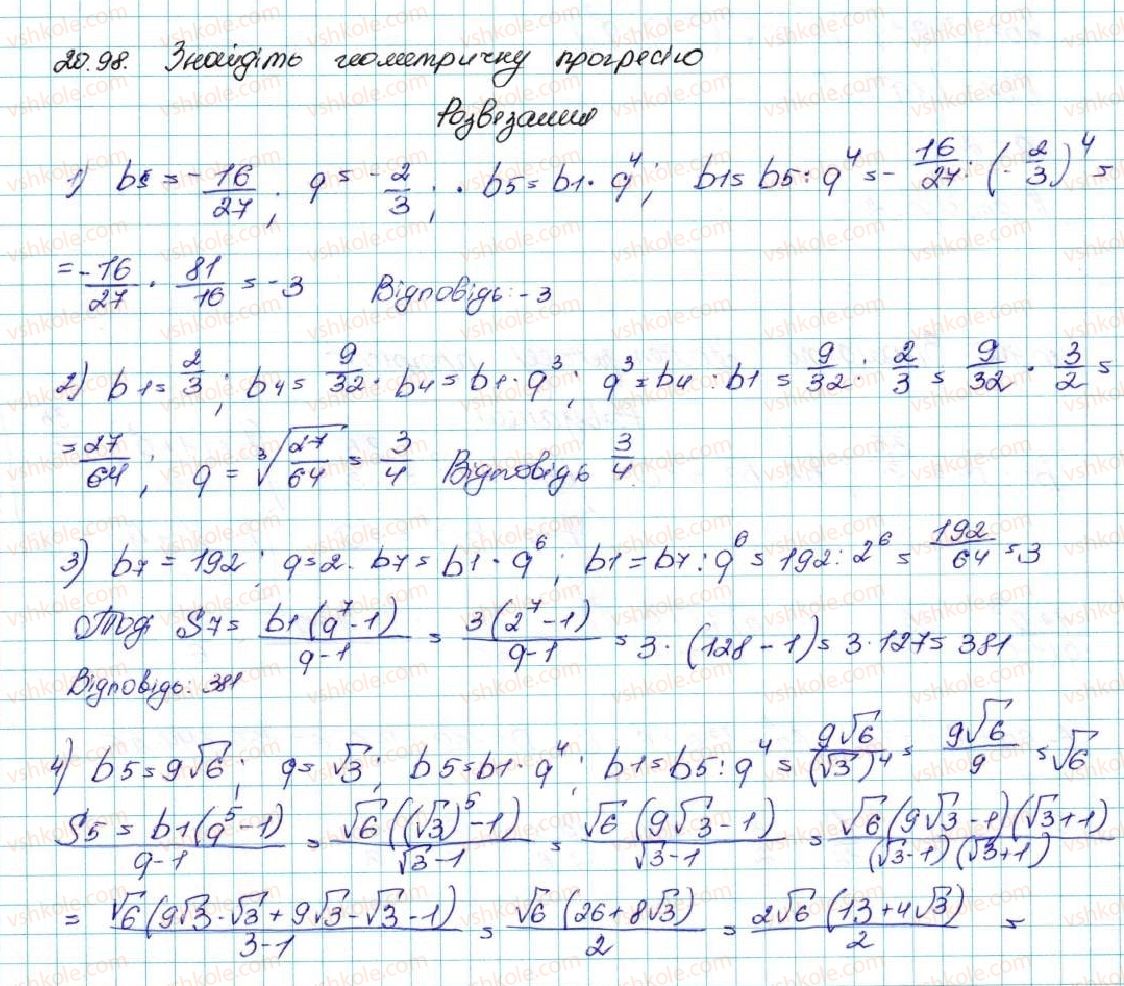 20.98. Знайдіть геометричну прогресію
Розвезання
1) b5 = -16/27; q = -2/3; b5 = b1 · q^4; b1 = b5 : q^4 = -16/27 : (-2/3)^4 =
= -16/27 · 81/16 = -3 Відповідь: -3
2) b1 = 2/3; b4 = 9/32. b4 = b1 · q^3; q^3 = b4 : b1 = 9/32 : 2/3 = 9/32 · 3/2 =
= 27/64; q = ∛(27/64) = 3/4 Відповідь 3/4.
3) b7 = 192; q = 2. b7 = b1 · q^6; b1 = b7 : q^6 = 192 : 2^6 = 192/64 = 3
Тоді S7 = b1(q^7-1)/q-1 = 3(2^7-1)/q-1 = 3 · (128-1) = 3 · 127 = 381
Відповідь: 381
4) b5 = 9√6; q = √3; b5 = b1 · q^4; b1 = b5 : q^4 = 9√6/(√3)^4 = 9√6/9 = √6
S5 = b1(q^5-1)/q-1 = √6((√3)^5-1)/√3-1 = √6(9√3-1)/√3-1 = √6(9√3-1)(√3+1)/(√3-1)(√3+1)
= √6(9√3·√3+9√3-√3-1)/3-1 = √6(26+8√3)/2 = 2√6(13+4√3)/2 =
vshkole.com